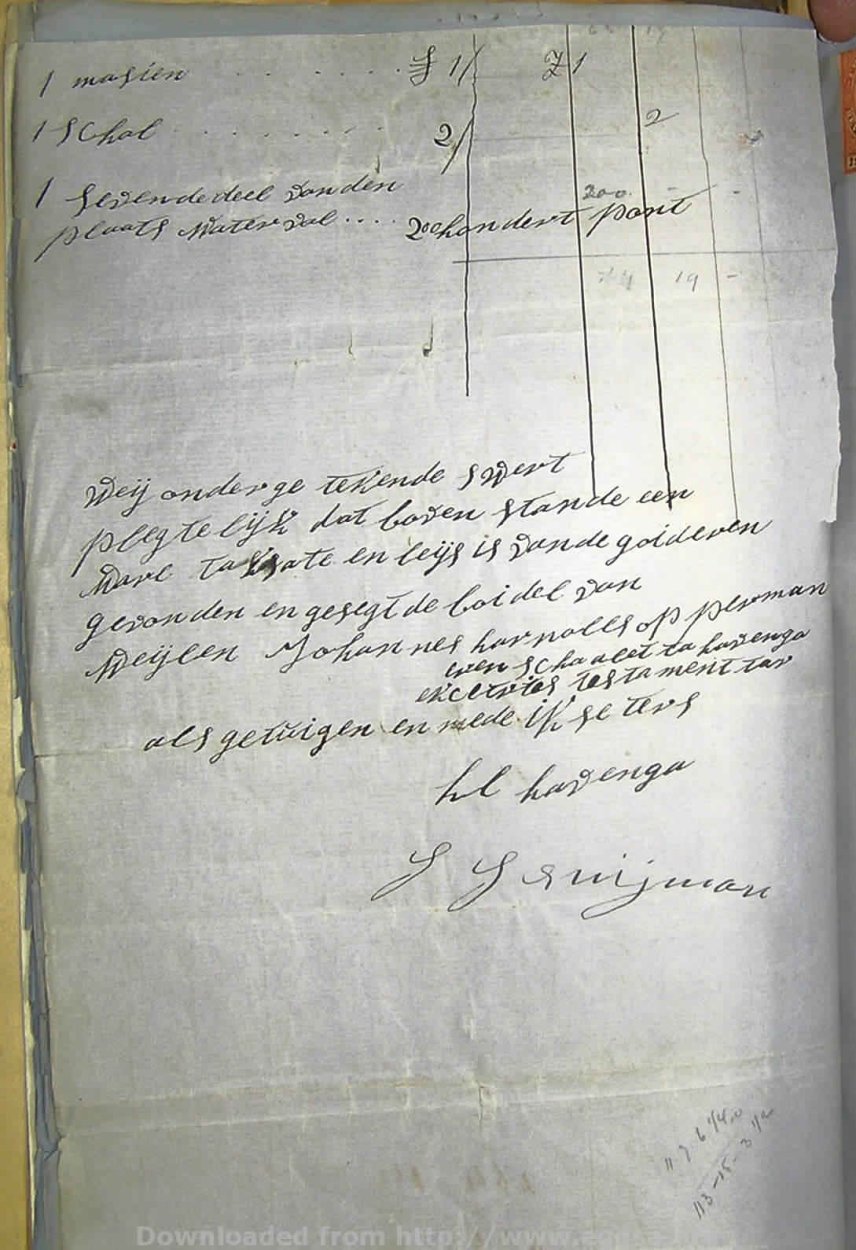 1 masien . . . . . . £ 1/ £ 1
1 schal . . . . . . . . 2/ 2
1 sevende deel van den 200 - -
plaats Waterval . . . . 200 hondert pont
19 -
Weij onderge tekende swert
plegtelijk dat boven stande een
Ware taksate en leijs is vande goideren
gevonden en gesegt de boidel van
Weijlen Johannes harnolls op perman
wen schaalet ta havenga
testament tar
als getuigen en mede ik se ters
hl havenga
S S snijman
113-15-3 1/2
Downloaded from http://www.eggsa